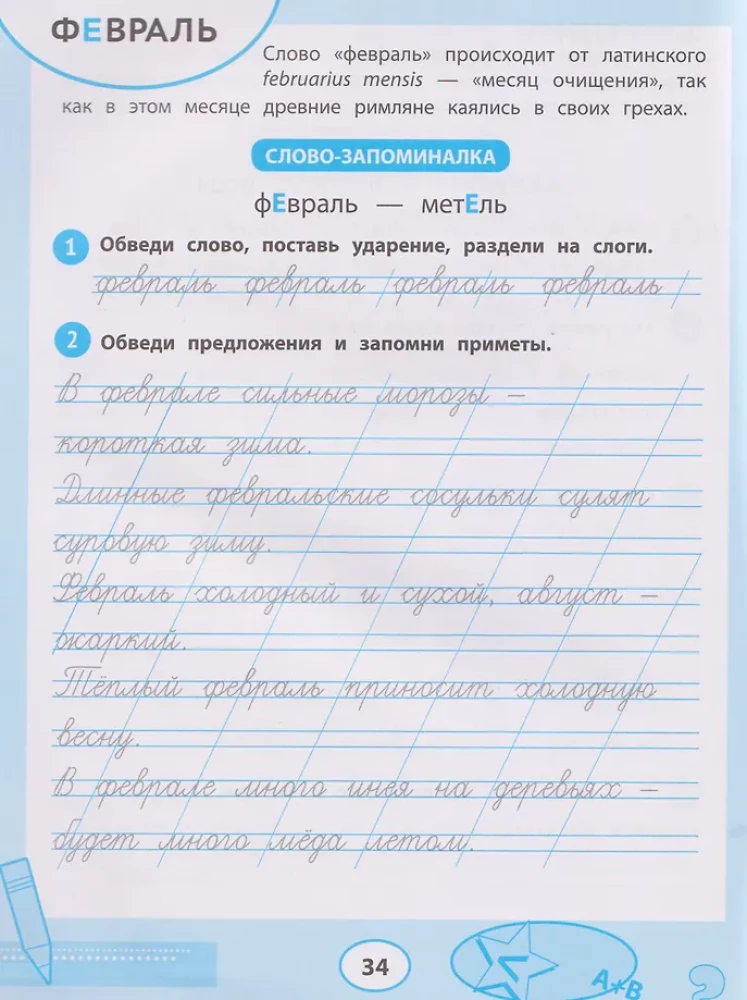 ФЕВРАЛЬ
Слово «февраль» происходит от латинского
februarius mensis — «месяц очищения», так
как в этом месяце древние римляне каялись в своих грехах.
СЛОВО-ЗАПОМИНАЛКА
фЕвраль — метЕль
1 Обведи слово, поставь ударение, раздели на слоги.
февраль февраль февраль февраль
2 Обведи предложения и запомни приметы.
В феврале сильные морозы –
короткая зима.
Длинные февральские сосульки сулят
суровую зиму.
Февраль холодный и сухой, август –
жаркий.
Тёплый февраль приносит холодную
весну.
В феврале много инея на деревьях –
будет много мёда летом.
34
А*В